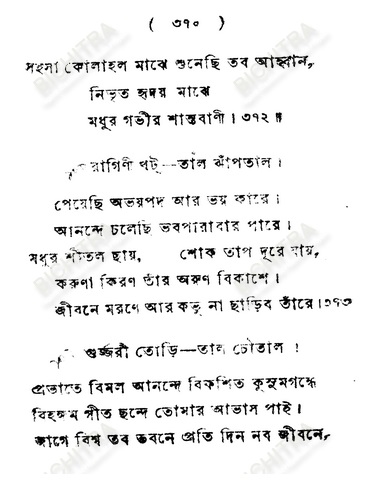 ( ৩৭০ )
সহসা কোলাহল মাঝে শুনেছি তব আহ্বান,
নিভৃত হৃদয় মাঝে
মধুর গভীর শান্তবাণী। ৩৭২॥
রাগিণী খট্—তাল ঝাঁপতাল।
পেয়েছি অভয়পদ আর ভয় কারে।
আনন্দে চলেছি ভবপারাবার পারে।
মধুর শীতল ছায়, শোক তাপ দূরে যায়,
করুণা কিরণ তাঁর অরুণ বিকাশে।
জীবনে মরণে আর কভু না ছাড়িব তাঁরে।৩৭৩
গুর্জ্জরী তোড়ি—তাল চৌতাল।
প্রভাতে বিমল আনন্দে বিকশিত কুসুমগন্ধে
বিহঙ্গম গীত ছন্দে তোমার আভাস পাই।
জাগে বিশ্ব তব ভবনে প্রতি দিন নব জীবনে,
BICHITRA